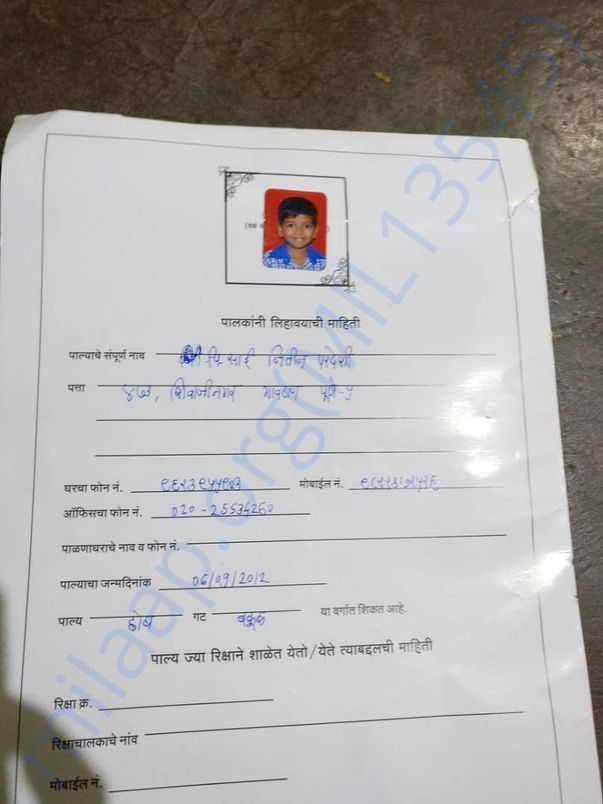 पालकांनी लिहावयाची माहिती
पाल्याचे संपूर्ण नाव चि साई नितीन परदेशी
पत्ता ४७३, शिवाजीनगर गावठाण पूणे-५
घरचा फोन नं. मोबाईल नं.
ऑफिसचा फोन नं. 020-25534260
पाळणाघराचे नाव व फोन नं.
पाल्याचा जन्मदिनांक 06/09/2012
पाल्य गट या वर्गात शिकत आहे.
पाल्य ज्या रिक्षाने शाळेत येतो/येते त्याबद्दलची माहिती
रिक्षा क्र.
रिक्षाचालकाचे नांव
मोबाईल नं.
milaap.org(MIL13545)